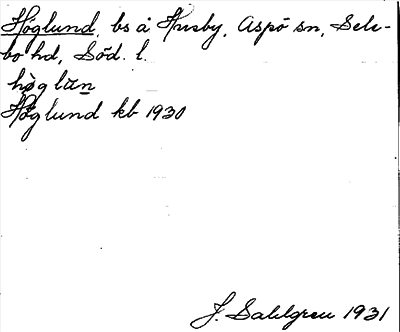 Höglund, bs å Husby, Aspö sn, Sele-
bo hd, Söd. l.
hø̀g lūn
Höglund kb 1930
J. Sahlgren 1931